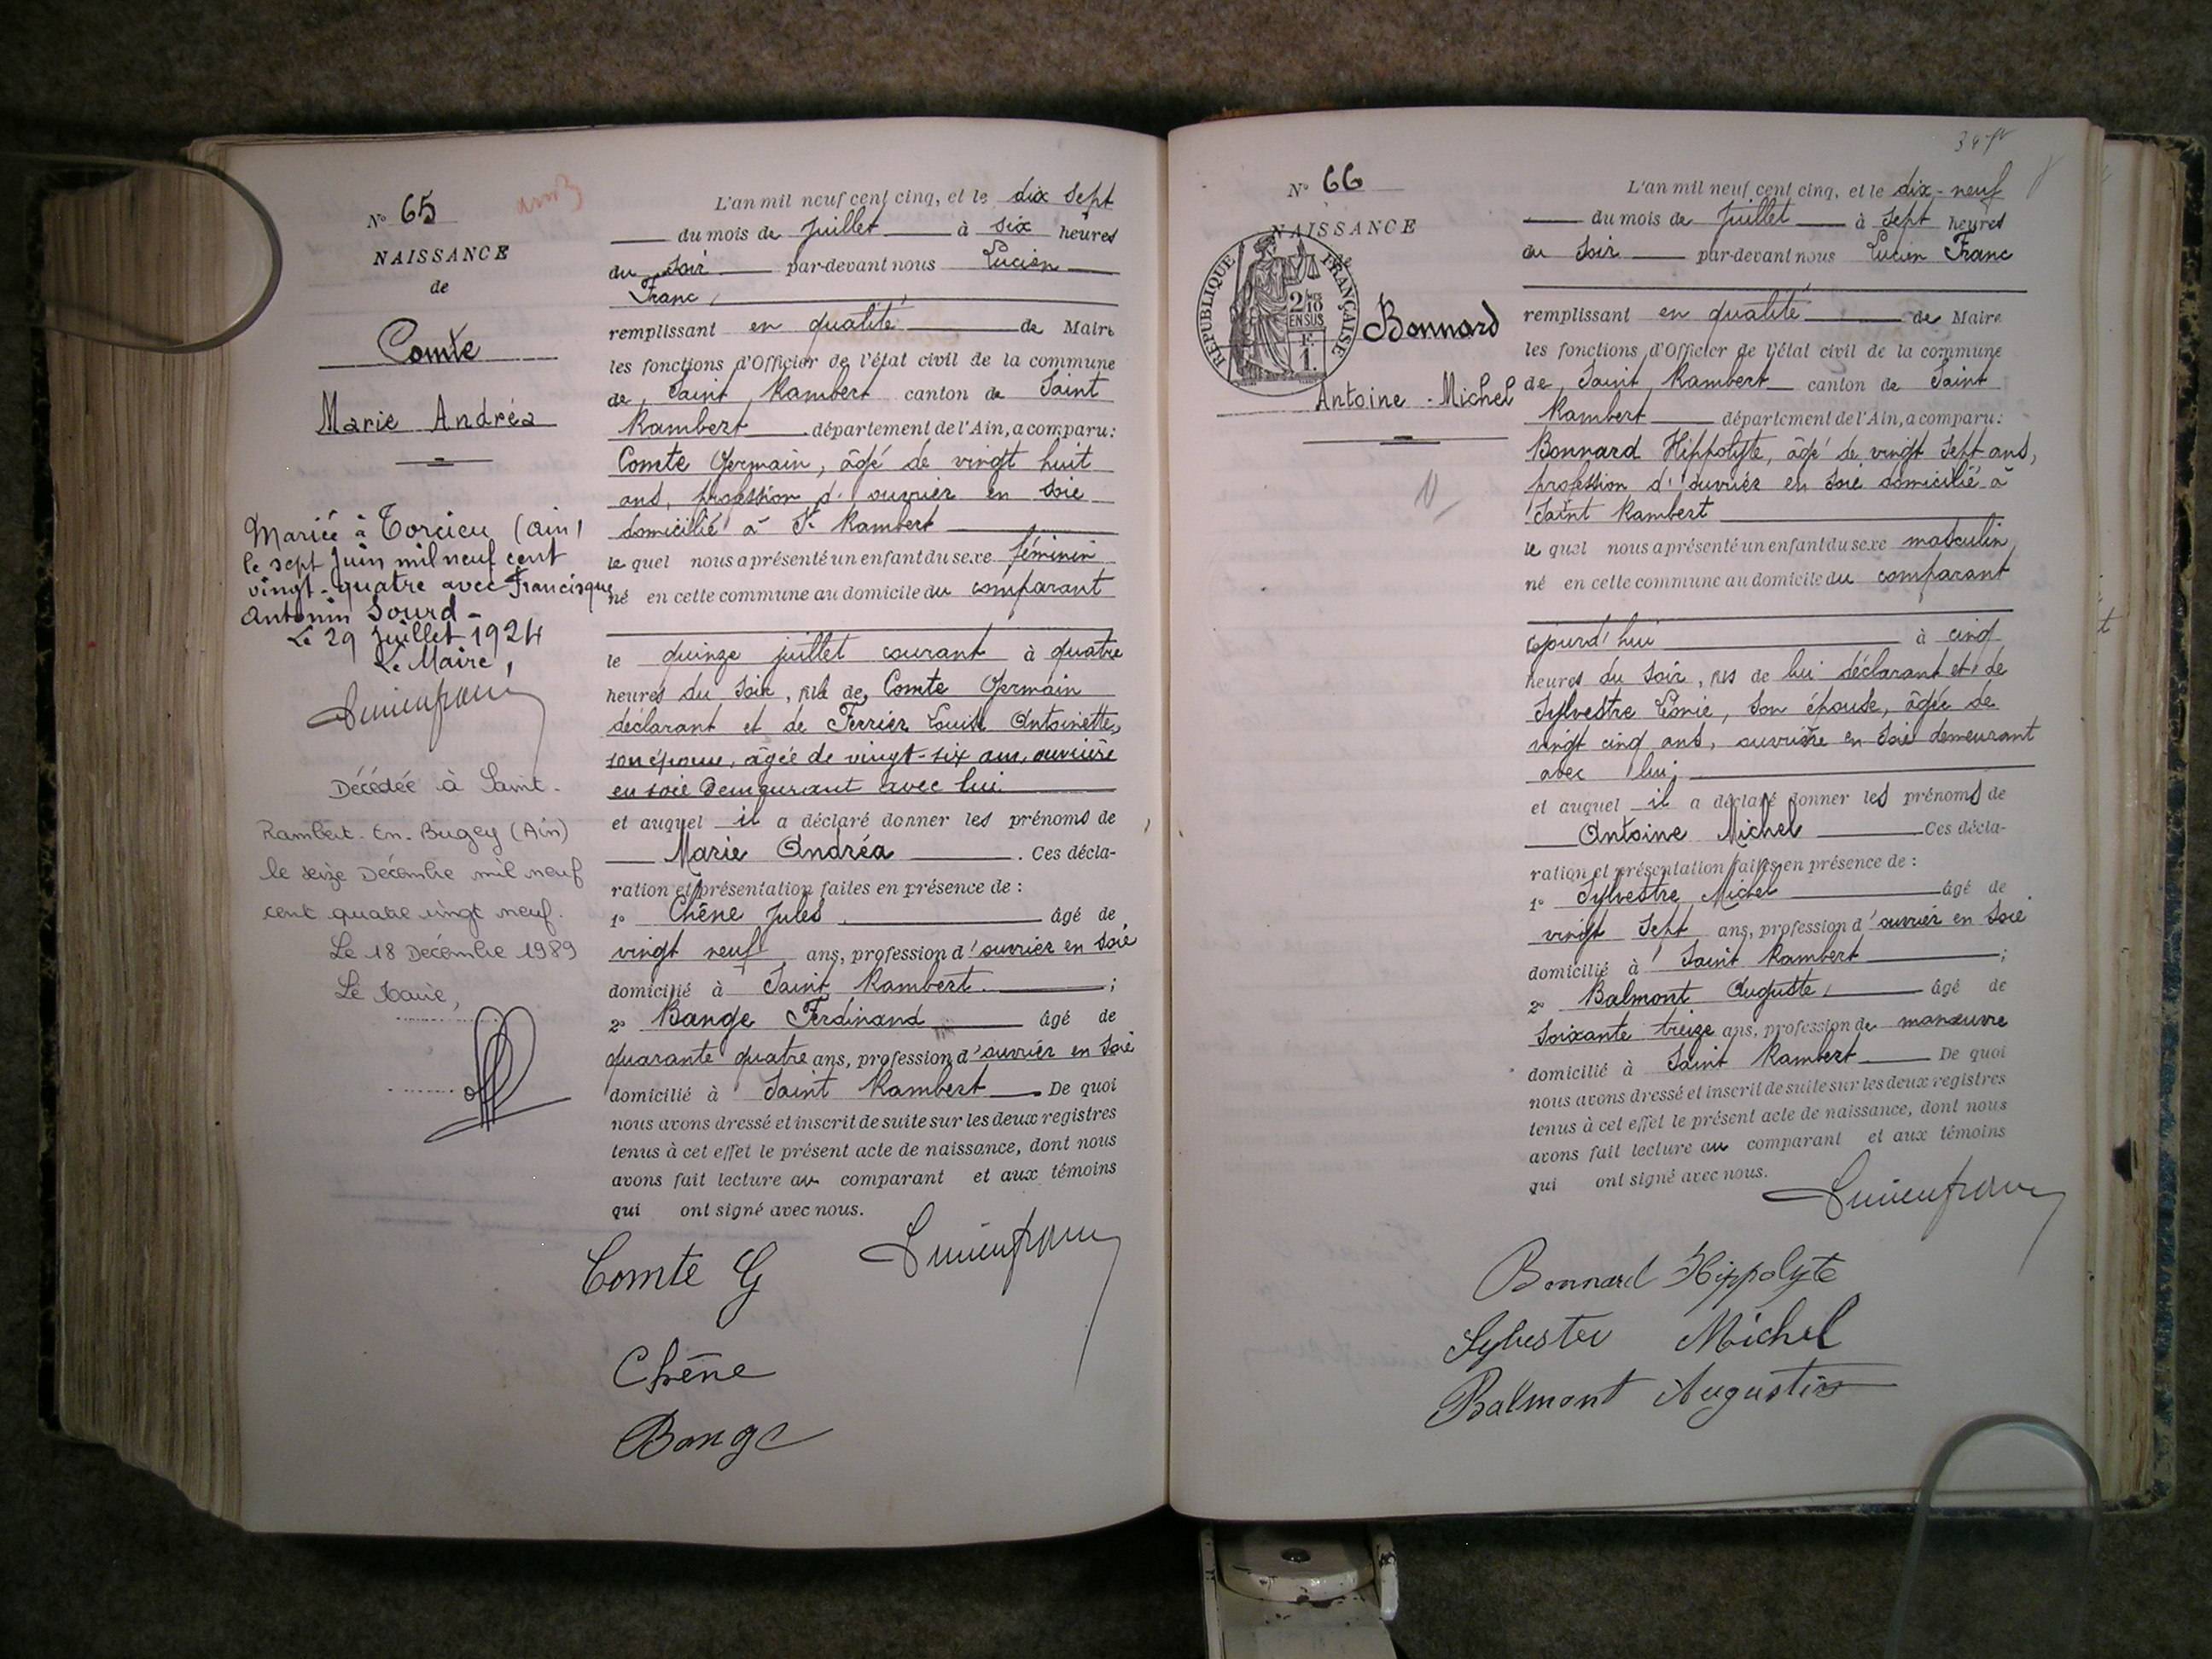 N° 65
NAISSANCE
de
Comte
Marie Andréa
Mariée à Torcieu (Ain)
le sept Juin mil neuf cent
vingt-quatre avec Francisque
Antonin Sourd -
Le 29 Juillet 1924
Le Maire,
Lucien franc
Décédée à Saint-
Rambert-En-Bugey (Ain)
le seize Décembre mil neuf
cent quatre vingt neuf.
Le 18 Décembre 1989
Le Maire,
L'an mil neuf cent cinq, et le dix sept
du mois de Juillet à six heures
du soir par-devant nous Lucien
Franc,
remplissant en qualité de Maire
les fonctions d'Officier de l'état civil de la commune
de Saint Rambert canton de Saint
Rambert département de l'Ain, a comparu:
Comte Germain, âgé de vingt huit
ans, profession d'ouvrier en soie
domicilié à St Rambert
le quel nous a présenté un enfant du sexe féminin
né en cette commune au domicile du comparant
le quinze juillet courant à quatre
heures du soir, fille de Comte Germain
déclarant et de Ferrier Louise Antoinette,
son épouse, âgée de vingt-six ans, ouvrière
en soie demeurant avec lui
et auquel il a déclaré donner les prénoms de
Marie Andréa . Ces décla-
ration et présentation faites en présence de :
1° Chêne Jules âgé de
vingt neuf ans, profession d'ouvrier en soie
domicilié à Saint Rambert ;
2° Bange Ferdinand âgé de
quarante quatre ans, profession d'ouvrier en soie
domicilié à Saint Rambert De quoi
nous avons dressé et inscrit de suite sur les deux registres
tenus à cet effet le présent acte de naissance, dont nous
avons fait lecture au comparant et aux témoins
qui ont signé avec nous.
Comte G Lucien franc
Chêne
Bange
N° 66
NAISSANCE
RÉPUBLIQUE FRANÇAISE
2/10
EN SUS
F.
1.
Bonnard
Antoine - Michel
L'an mil neuf cent cinq, et le dix-neuf
du mois de Juillet à sept heures
du soir par-devant nous Lucien Franc
remplissant en qualité de Maire
les fonctions d'Officier de l'état civil de la commune
de Saint Rambert canton de Saint
Rambert département de l'Ain, a comparu:
Bonnard Hippolyte, âgé de vingt sept ans,
profession d'ouvrier en soie domicilié à
Saint Rambert
le quel nous a présenté un enfant du sexe masculin
né en cette commune au domicile du comparant
cejourd'hui à cinq
heures du soir, fils de lui déclarant et de
Sylvestre son épouse, âgée de
vingt cinq ans, ouvrière en soie demeurant
avec lui,
et auquel il a déclaré donner les prénoms de
Antoine Michel Ces décla-
ration et présentation faites en présence de :
1° Sylvestre Michel âgé de
vingt sept ans, profession d'ouvrier en soie
domicilié à Saint Rambert ;
2° Balmont Auguste, âgé de
soixante treize ans, profession de manœuvre
domicilié à Saint Rambert De quoi
nous avons dressé et inscrit de suite sur les deux registres
tenus à cet effet le présent acte de naissance, dont nous
avons fait lecture au comparant et aux témoins
qui ont signé avec nous.
Lucien franc
Bonnard Hippolyte
Sylvestre Michel
Balmont Augustin